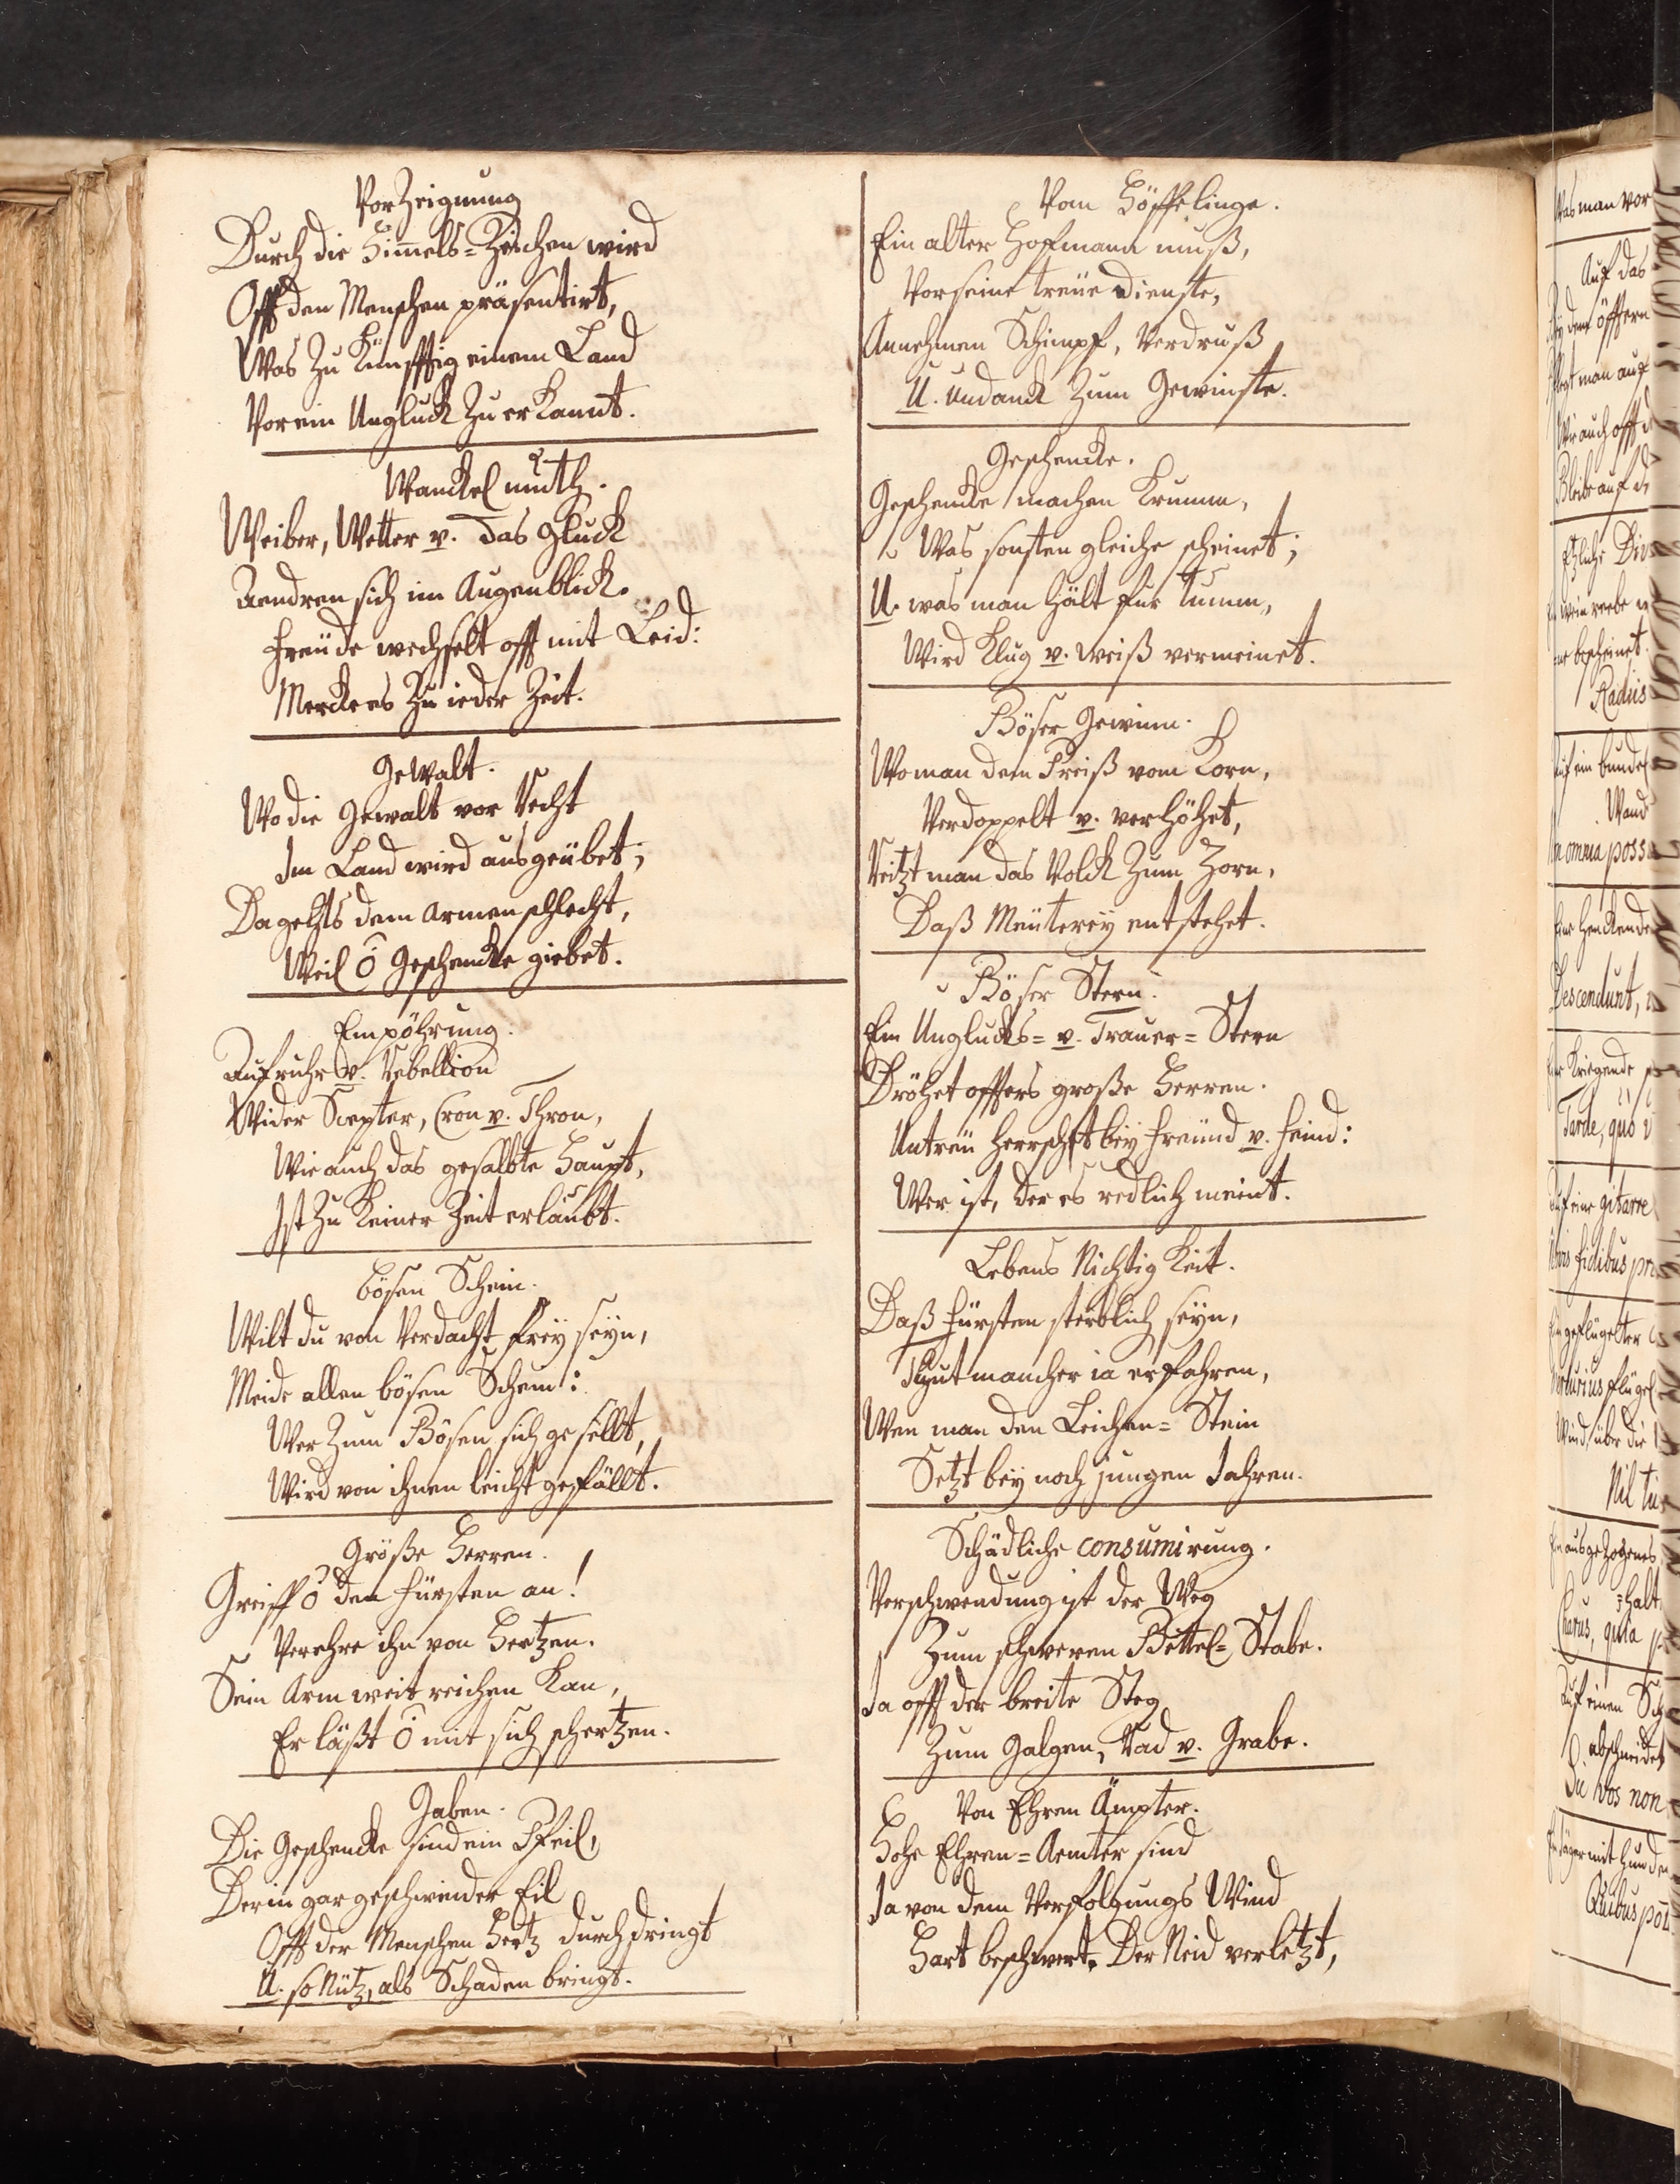 VorZeignung
Durch die Him̄els=Zeichen wird
Offt den Menschen präsentirt,
Was Zu Künfftig einem Land
Vor ein Ungluck Zuerkannt.
Wanckelmuth.
Weiber, Wetter v. das Gluck
Aendren sich im Augenblick.
Freude wechselt offt mit Leid:
Mercke es Zu ieder Zeit.
Gewalt.
Wo die Gewalt vor Recht
Im Land wird ausgeübet;
Da gehts dem armen schlecht,
Weil Ô Geschencke giebet.
Empöhrung.
Aufruhr v. Rebellion
Wider Scepter, Cron v. Thron,
Wie auch das gesalbte Haupt,
Ist Zu Keiner Zeit erlaubt.
bösen Schein.
Wilt du von Verdacht frey seyn,
Meide allen bösen Schein:
Wer Zum Bösen sich gesellt,
Wird von ihnen leicht gefällt.
Große Herren.
Greiff Ô den Fürsten an!
Verehre ihn von Hertzen.
Sein Arm weit reichen Kan,
Er läßt Ô mit sich schertzen.
Gaben.
Die Geschencke sind ein Pfeil,
Der in gar geschwinder Eil
Offt der Menschen Hertz durchdringt
U. so Nutz, als Schaden bringt.
Vom Höfflinge.
Ein alter Hofmann muß,
Vor seine treue Dienste,
Annehmen Schimpf, Verdruß
U. Undanck Zum Gewinste.
Geschencke.
Geschencke machen Krumm,
Was sonsten gleiche scheinet;
U. was man hält für tumm,
Wird Klug v. weiß vermeinet.
Böser Gewinn.
Wo man den Preiß vom Korn,
Verdoppelt v. verhöhet,
Reitzt man das Volck Zum Zorn,
Daß Meuterey entstehet.
Böser Stern.
Ein Unglucks= v. Trauer=Stern
Dröhet offters große Herren.
Untreu herrscht bey Freund v. Feind:
Wer ist, der es redlich meint.
Lebens NichtigKeit.
Daß Fürsten sterblich seyn,
Thut mancher ia erfahren,
Wen man den Leichen=Stein
Setzt bey noch jungen Jahren.
Schädliche consumirung.
Verschwendung ist der Weg
Zum schweren Bettel=Stabe.
Ja offt der breite Steg
Zum Galgen, Rad v. Grabe.
Von Ehren Ämpter.
Hohe Ehren=Aemter sind
Ja von dem Verfolgungs Wind
Hart beschwert. Der Neid verletzt,
Was man vor
Auf das
dem öffern
man auf
Wie auch offt
Bleibe auf
Etzliche
bescheinet.
Radiis
Auf ein bundel
Wand
omnia poss
Descendunt,
Kriegende
Tarde, quo
Auf eine gitarre
fidibus
geflügelter
Mercurius flügel
Wind über die
Nil
ausgezogenes
halt
Charus, quia
Auf einen
abschneidet
Sic vos non
Jäger mit Hunden
Quibus